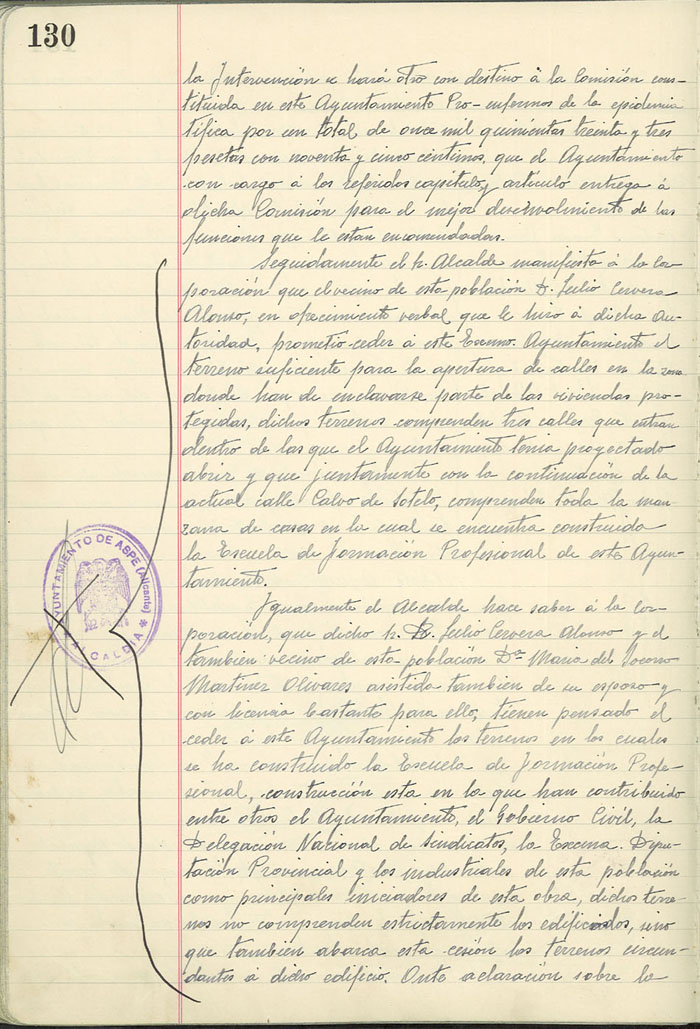 130
la Intervención se hará otro con destino á la Comisión cons-
tituida en este Ayuntamiento Pro-enfermos de la epidemia
tífica por un total de once mil quinientas treinta y tres
pesetas con noventa y cinco céntimos, que el Ayuntamiento
con cargo á los referidos capítulo y artículo entrega á
dicha Comisión para el mejor desenvolvimiento de las
funciones que le estan encomendadas.
Seguidamente el Sr. Alcalde manifiesta á la Cor-
poración que el vecino de esta población D. Julio Cervera
Alonso, en ofrecimiento verbal que le hizo á dicha Au-
toridad, prometió ceder á este Excmo. Ayuntamiento el
terreno suficiente para la apertura de calles en la zona
donde han de enclavarse parte de las viviendas pro-
tegidas, dichos terrenos comprenden tres calles que entran
dentro de las que el Ayuntamiento tenia proyectado
abrir y que juntamente con la continuación de la
actual calle Calvo de Sotelo, comprenden toda la man-
zana de casas en la cual se encuentra construida
la Escuela de Formación Profesional de este Ayun-
tamiento.
Igualmente el Alcalde hace saber á la Cor-
poración, que dicho Sr. D. Julio Cervera Alonso y el
tambien vecino de esta población Dª Maria del Socorro
Martinez Olivares asistida tambien de su esposo y
con licencia bastante para ello, tienen pensado el
ceder á este Ayuntamiento los terrenos en los cuales
se ha construido la Escuela de Formación Profe-
sional, construcción esta en la que han contribuido
entre otros el Ayuntamiento, el Gobierno Civil, la
Delegación Nacional de Sindicatos, la Excma. Dipu-
tación Provincial y los industriales de esta población
como principales iniciadores de esta obra, dichos terre-
nos no comprenden estrictamente los edificados, sino
que tambien abarca esta cesión los terrenos circun-
dantes á dicho edificio. Ante aclaración sobre la
AYUNTAMIENTO DE ASPE (Alicante)
* ALCALDIA *